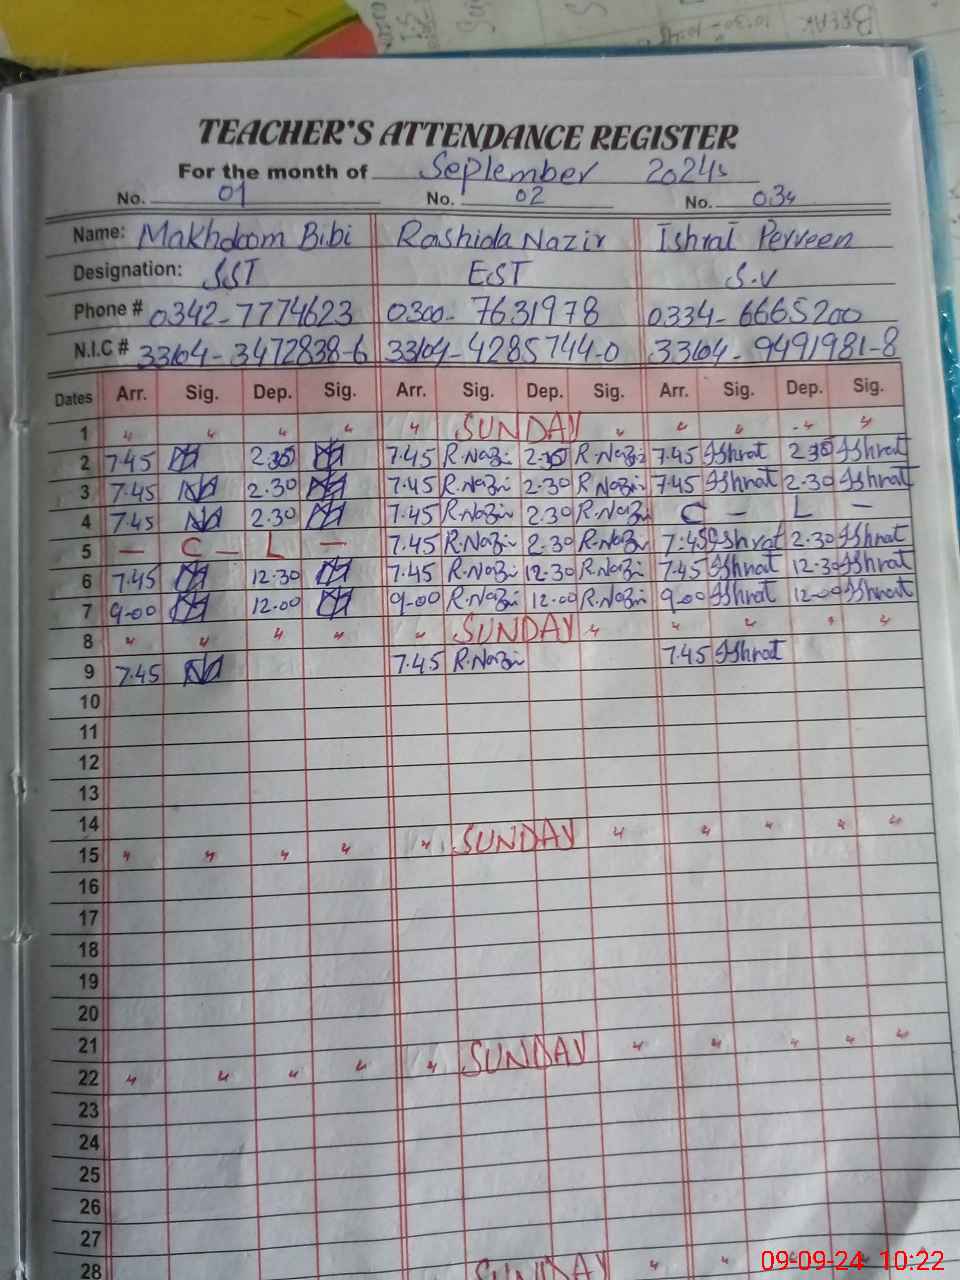 BREAK
TEACHER'S ATTENDANCE REGISTER
For the month of September 2024
No. 01 No. 02 No. 03
Name: Makhdoom Bibi Rashida Nazir Ishrat Perveen
Designation: SST EST S.V
Phone # 0342-7774623 0300-7631978 0334-6665200
N.I.C # 33104-3472838-6 33104-4285744-0 33104-9491981-8
Dates Arr. Sig. Dep. Sig. Arr. Sig. Dep. Sig. Arr. Sig. Dep. Sig.
1 " " " " " SUNDAY " " " " "
2 7.45 2.30 7.45 R.Nazir 2.30 R.Nazir 7.45 Ishrat 2.30 Ishrat
3 7.45 2.30 7.45 R.Nazir 2.30 R.Nazir 7.45 Ishrat 2.30 Ishrat
4 7.45 2.30 7.45 R.Nazir 2.30 R.Nazir C - L -
5 - C - L - 7.45 R.Nazir 2.30 R.Nazir 7:45 Ishrat 2.30 Ishrat
6 7.45 12.30 7.45 R.Nazir 12.30 R.Nazir 7.45 Ishrat 12.30 Ishrat
7 9-00 12.00 9-00 R.Nazir 12.00 R.Nazir 9-00 Ishrat 12-00 Ishrat
8 " " " " " SUNDAY " " " " "
9 7.45 7.45 R.Nazir 7.45 Ishrat
10
11
12
13
14
15 " " " " " SUNDAY " " " " "
16
17
18
19
20
21
22 " " " " " SUNDAY " " " " "
23
24
25
26
27
28 SUNDAY " " "
09-09-24 10:22